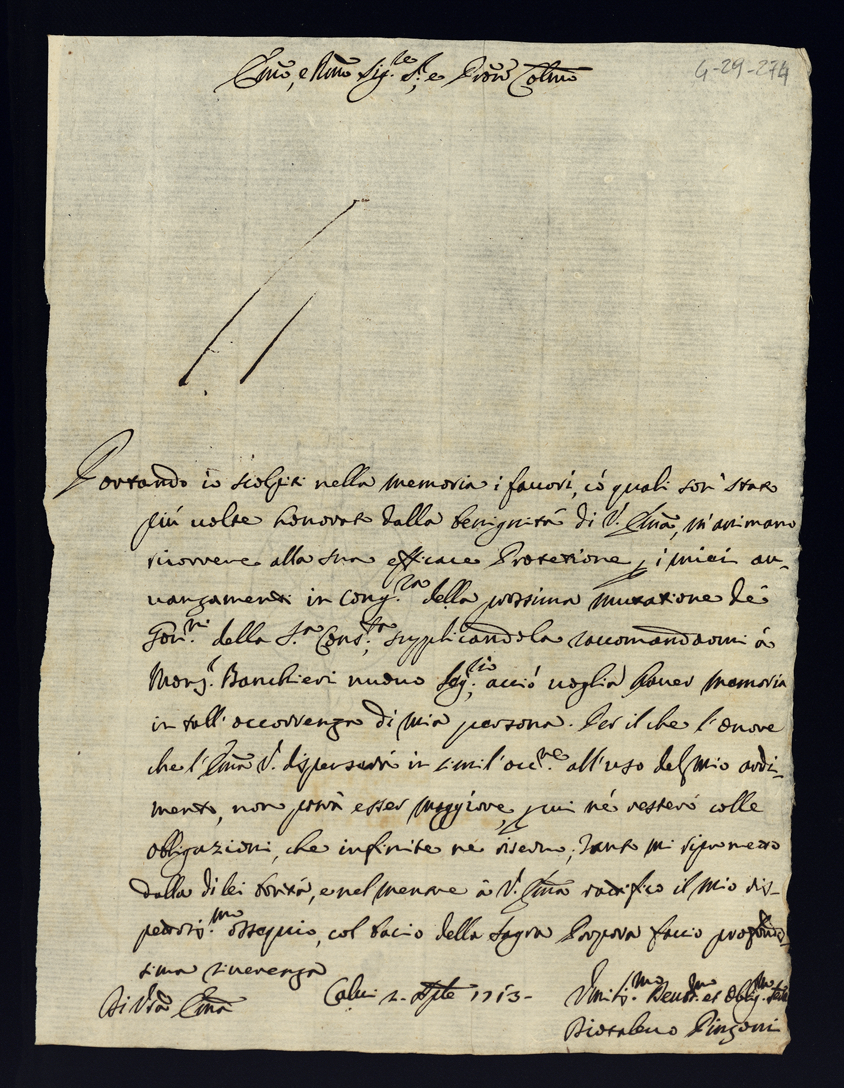 Em̃o, e Rm̃o Sig.re S.r, e Pron̄ Colm̃o
G-29-274
Portando io scolpiti nella memoria i favori, có quali son' stato
piú volte honorato dalla benignitá di V. Em̃a, m'animano
ricorrere alla sua efficace Protezione p i miei au-
vanzamenti in cong.za della prossima mutazione dé
Gov.ni della S.ra Cons.ta, supplicandola raccomandarmi á
Mons.r Banchieri nuovo Seg.rio, acció voglia haver memoria
in tall' occorrenza di mia persona. Per il che l'onore
che l'Em̃a V. dispenserá in simil' occ.ne all'uso del mio ardi-
mento, non potrá esser maggiore, p cui né resteró colle
obligazioni, che infinite né riserbo; tanto mi riprometto
dalla di lei bontá, e nel mentre á V. Em̃a ratifico il mio ris-
pettosis.mo ossequio, col bacio della Sagra Porpora faccio profondis-
sima riverenza
Di Vrã Em̃a
Calvi 2 1713.
Umilis.mo Devot.mo et Oblig.mo
Pinzoni